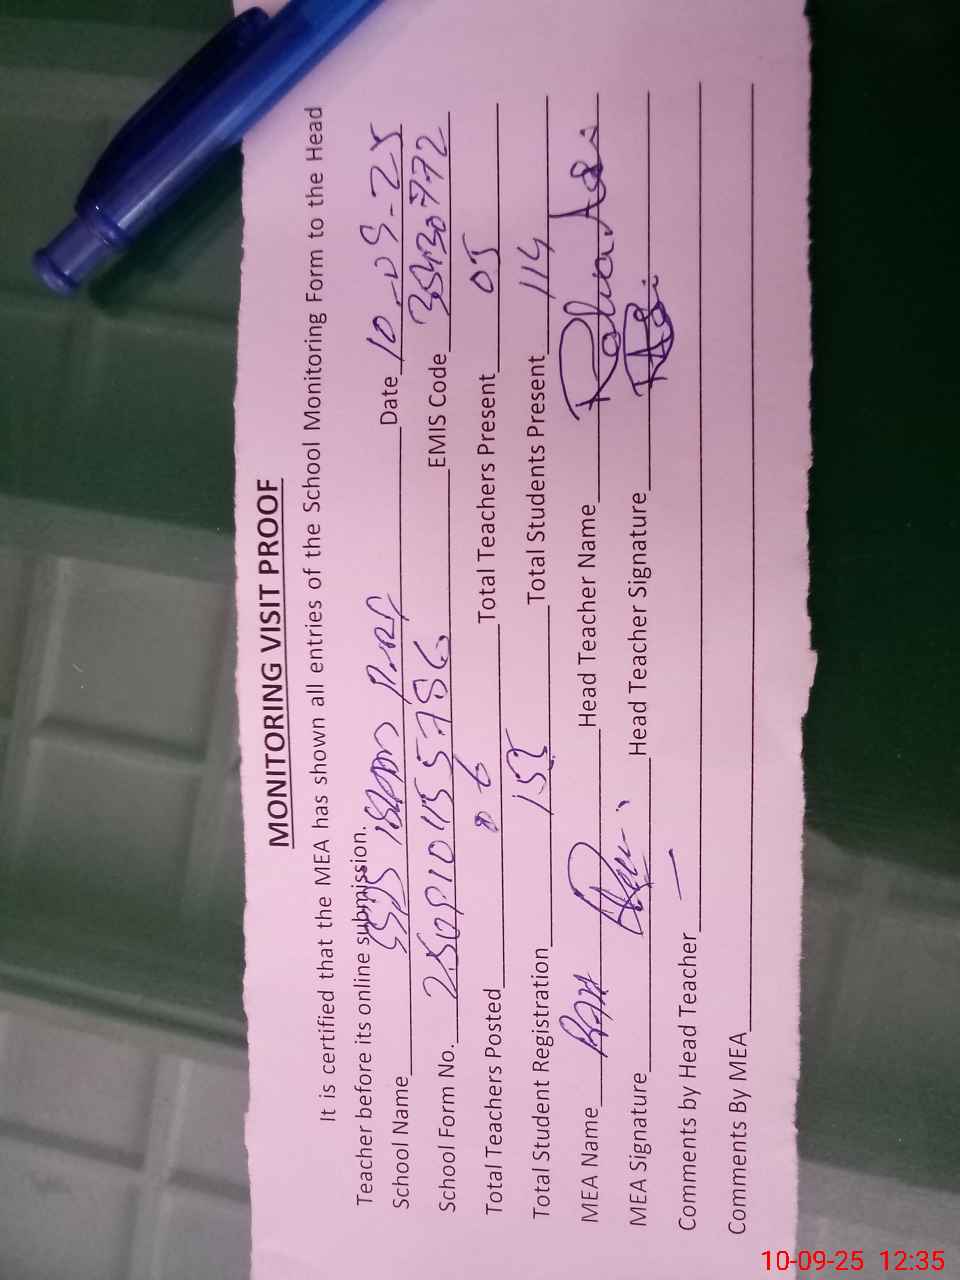 MONITORING VISIT PROOF
It is certified that the MEA has shown all entries of the School Monitoring Form to the Head
Teacher before its online submission.
School Name Date 10-09-25
School Form No. EMIS Code 35430772
Total Teachers Posted 06 Total Teachers Present 05
Total Student Registration 155 Total Students Present 114
MEA Name Head Teacher Name
MEA Signature Head Teacher Signature
Comments by Head Teacher
Comments By MEA
10-09-25 12:35